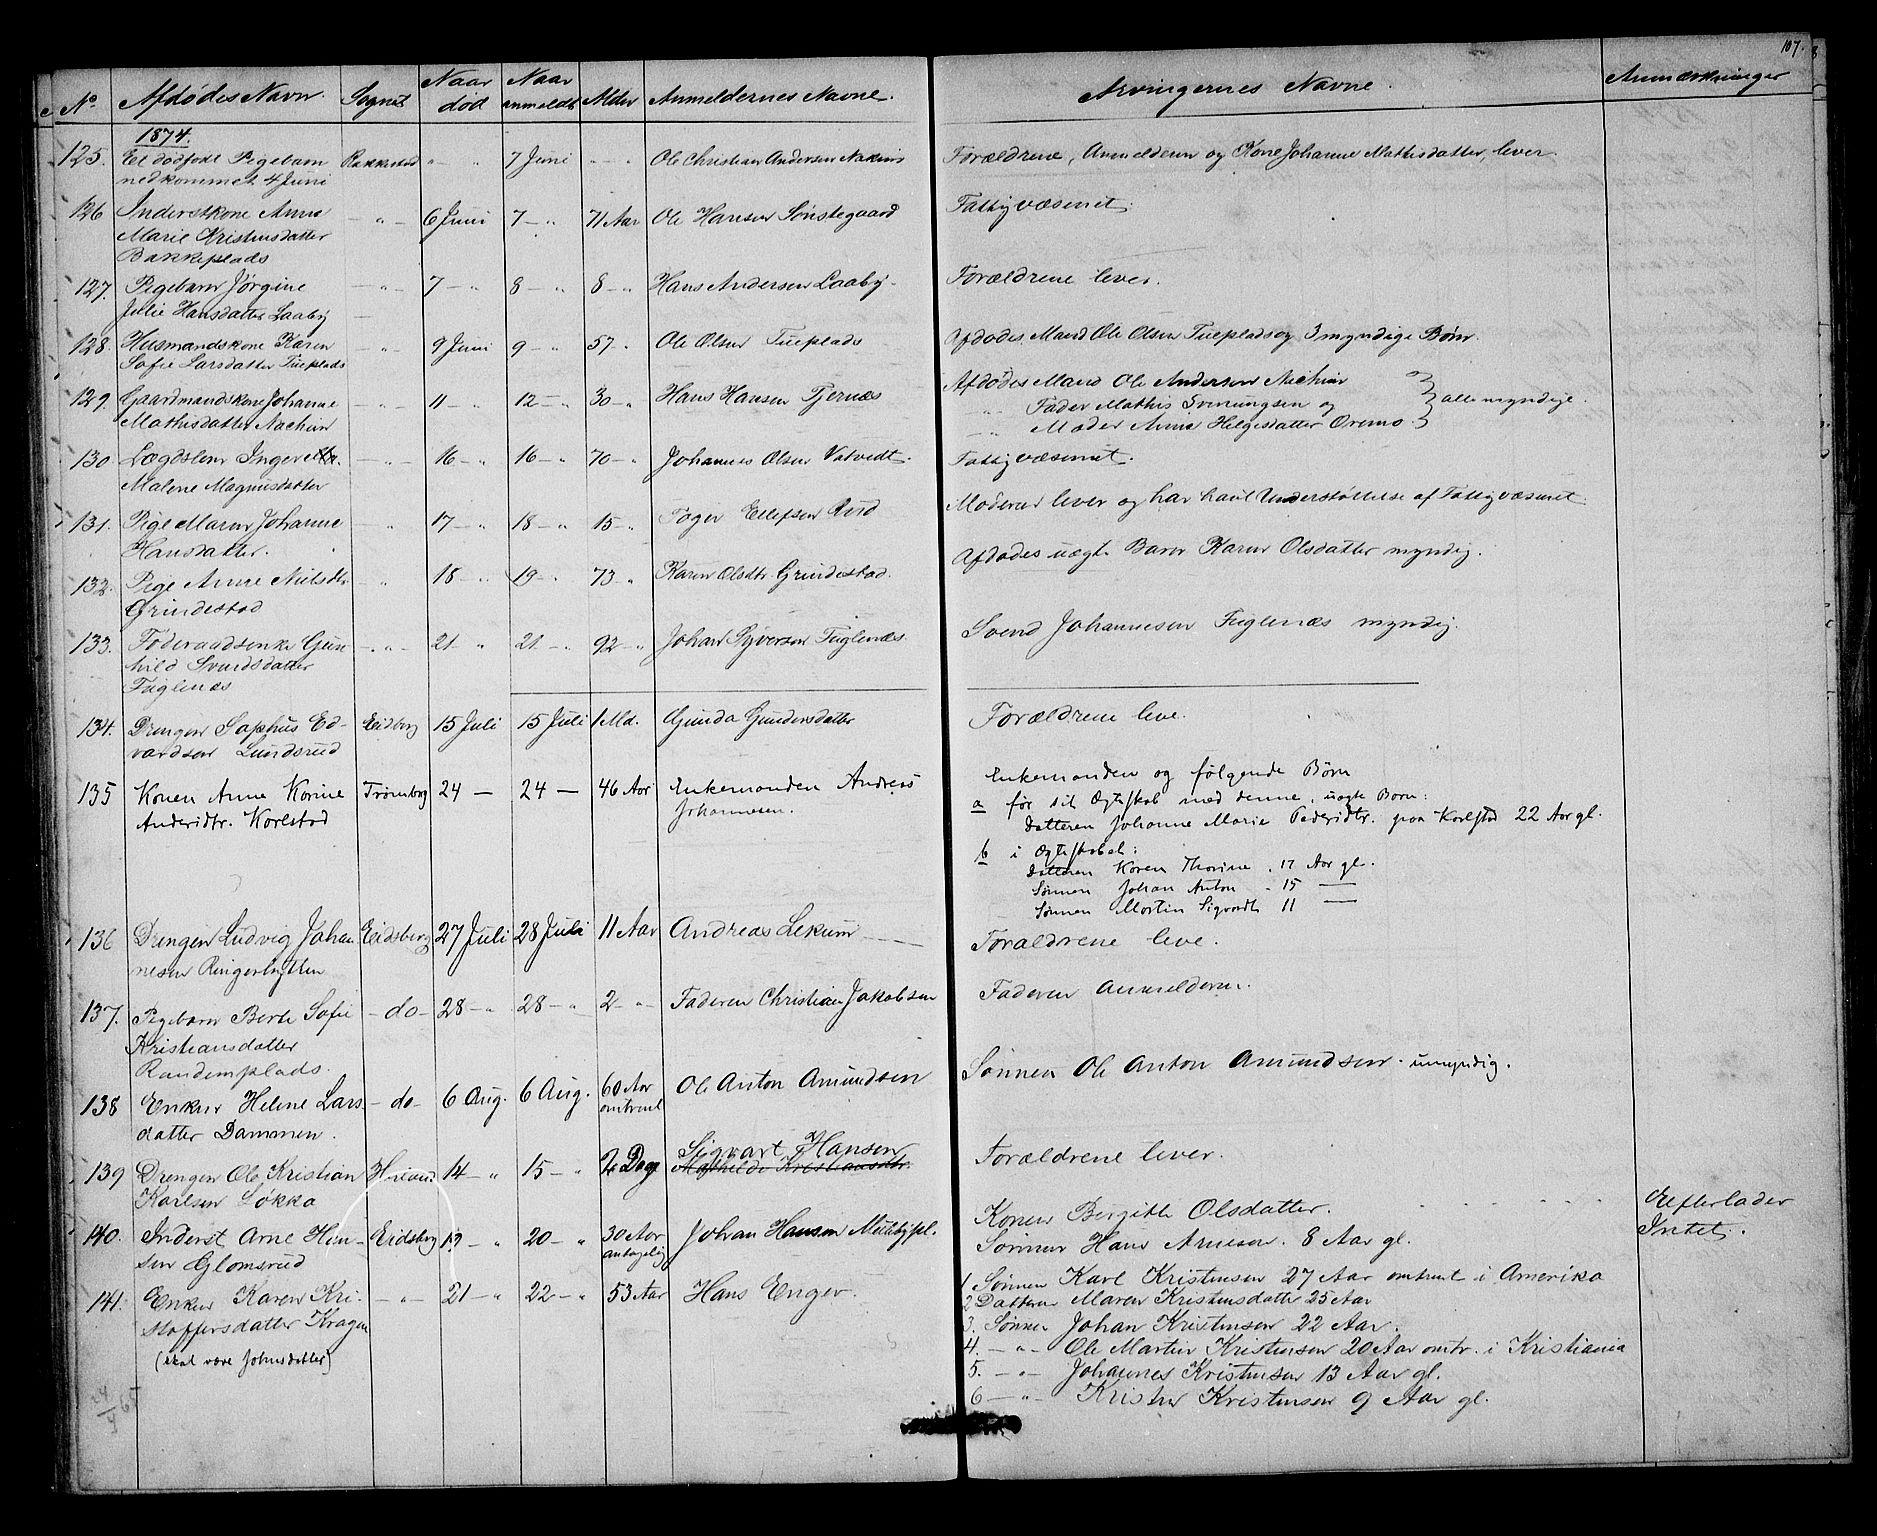 107.
No. Afdødes Navn. Sognet Naar død Naar anmeldt Alder Anmeldernes Navne. Arvingernes Navne. Anmærkninger
1874.
125. Et dødfødt Pigebarn Rakkestad " " 7 Juni " " Ole Christian Andersen Forældrene, Anmelderen og Kone Johanne Mathisdatter, lever.
nedkommet 4 Juni
126 Inderstkone Anne - " - 6 Juni 7 - " 71 Aar Ole Hansen Sønstegaard Fattigvæsenet.
Marie Kristensdatter
Bakkeplads
127. Pigebarn Jørgine - " - 7 - " 8 - " 8 - " Hans Andersen Laaby. Forældrene lever.
Julie Hansdatter Laaby
128. Husmandskone Karen - " - 9 Juni 9 - " 57 - " Ole Olsen Tueplads Afdødes Mand Ole Olsen Tueplads og 3 myndige Børn.
Sofie Larsdatter Tueplads
129. Gaardmandskone Johanne - " - 11 - " 12 - " 30 - " Hans Hansen Tjernæs Afdødes Mand Ole Andersen
Mathisdatter - " - Fader Mathis Svenungsen og } alle myndige.
- " - Moder Anne Helgesdatter Oremo.
130 Lægdslem Inger - " - 16 - " 16 - " 70 - " Johannes Olsen Vatvedt. Fattigvæsenet.
Malene Magnusdatter
131. Pige Maren Johanne " 17 - " 18 - " 15 - " Roger Ellefsen Rud Moderen lever og har havt Understøttelse af Fattigvæsenet.
Hansdatter.
132. Pige Anne Nielsdtr " 18 - " 19 - " 73 - " Karen Olsdtr. Grindestad. Afdødes uægte Barn Karen Olsdatter myndig.
Grindestad
133. Føderaadsenke Gun - " - 21 - " 21 - " 92 - " Johan Syversen Fuglenæs. Svend Johannesen Fuglenæs myndig.
hild Svendsdatter
Fuglenæs
134. Drengen Sophus Ed- Eidsberg 15 Juli 15 Juli 1 Md. Gunda Gundersdatter Forældrene leve.
vardsen Lundsrud
135 Konen Anne Korine Trømborg 24 — 24 — 46 Aar Enkemanden Andreas Enkemanden og følgende Børn
Andersdtr. Karlstad Johannesen. a før sit Ægteskab med denne, uægte Barn:
Datteren Johanne Marie Pedersdtr. paa Karlstad 22 Aar gl.
b i Ægteskabet:
Datteren Karen Thorine, 17 Aar gl.
Sønnen Johan Anton " 15 —
Sønnen Martin Sigvardt 11 —
136 Drengen Ludvig Johan Eidsberg 27 Juli 28 Juli 11 Aar Andreas Lekum Forældrene leve.
nesen Ringerhytten
137. Pigebarn Berte Sofie - do - 28 - " 28 - " 2 - " - Faderen Christian Jakobsen Faderen Anmelderen.
Kristiansdatter
Randemplads.
138 Enken Helene Lars - do - 6 Aug. 6 Aug. 60 Aar Ole Anton Amundsen Sønnen Ole Anton Amundsen - umyndig.
datter Dammen. omtrent
139 Drengen Ole Kristian 14 - " 15 - " 2 Dage Sigvart Hansen Forældrene lever.
Karlsen Løkka Mathilde Kristiansdtr.
140. Inderst Arne Han- Eidsberg 19 - " 20 - " 30 Aar Johan Hansen Konen Bergitte Olsdatter. Efterlader
sen Glomsrud antagelig Sønnen Hans Arnesen. 8 Aar gl. Intet.
141. Enken Karen Kri- - " - 21 - " 22 - " 53 Aar Hans Enger. 1 Sønnen Karl Kristensen 27 Aar omtrent i Amerika
stoffersdatter Kragen 2 Datteren Maren Kristensdatter 25 Aar
(skal være Johnsdatter) 3. Sønnen Johan Kristensen 22 Aar.
4. - " - Ole Martin Kristensen 20 Aar omtr. i Kristiania
5. - " - Johannes Kristensen 13 Aar gl.
6 - " - Kristen Kristensen 9 Aar gl.